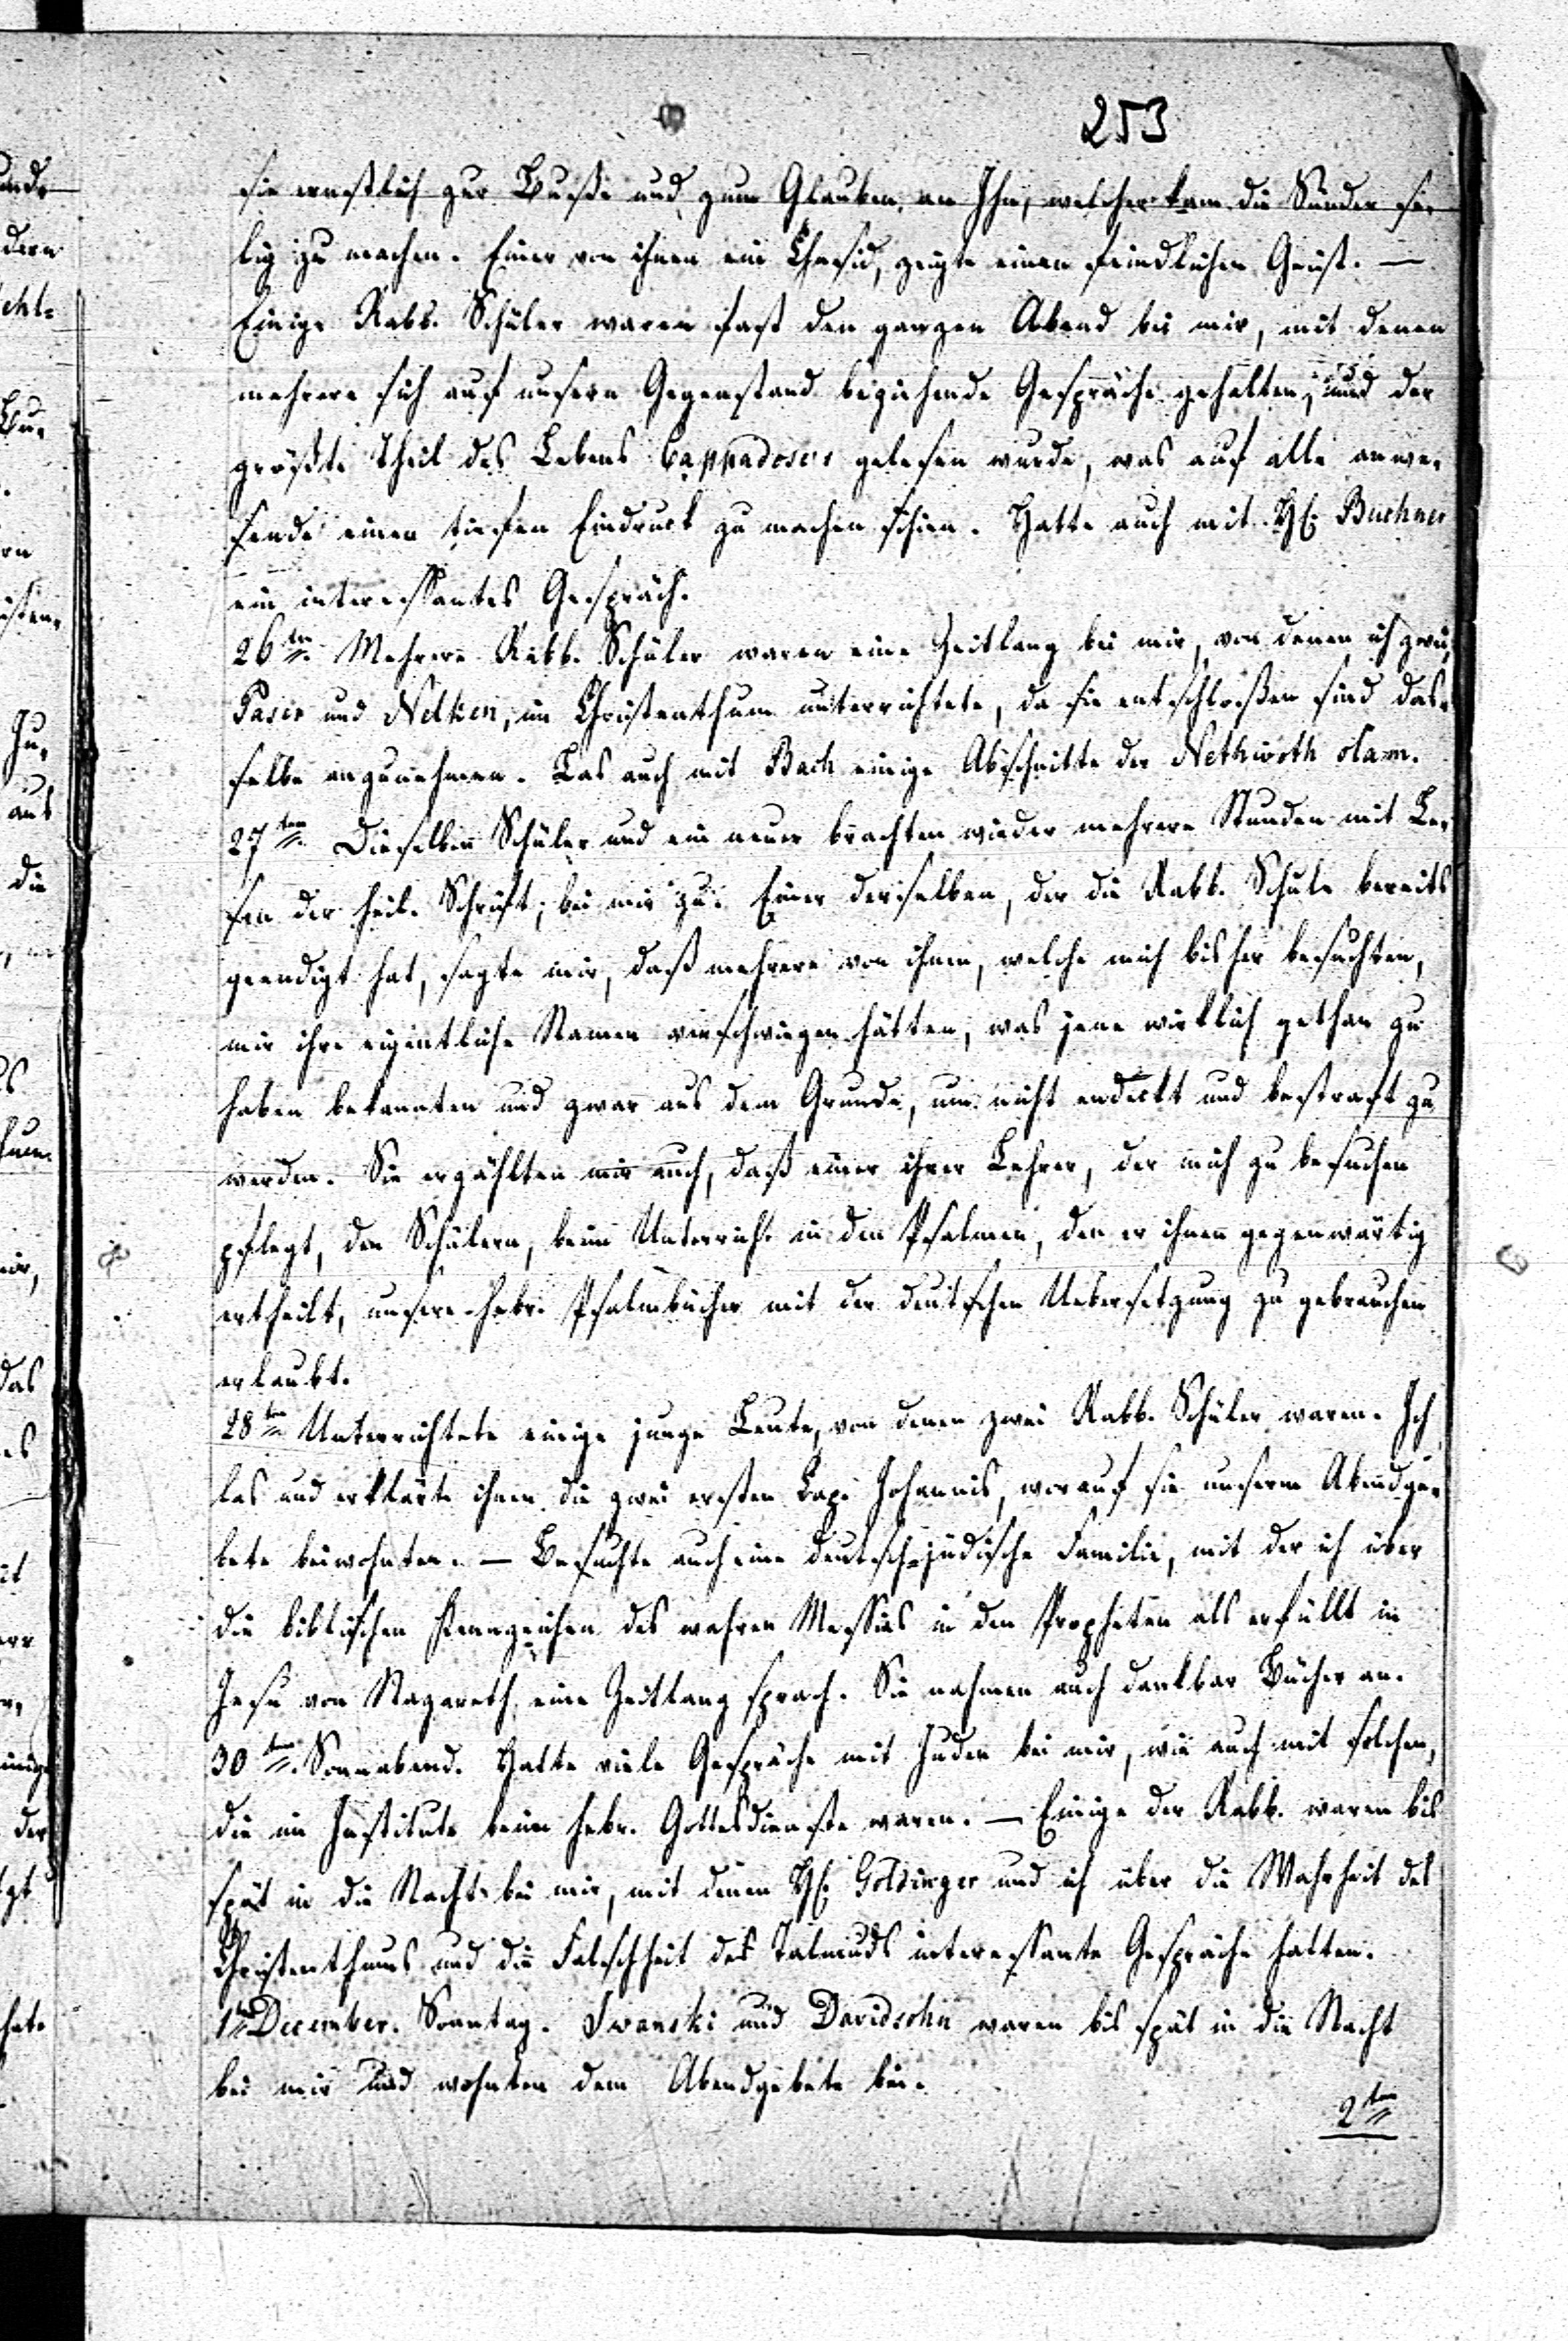 253
sie ernstlich zur Buße und zum Glauben an Ihn, welcher kam die Sünder se-
lig zu machen. Einer von ihnen ein Chasid, zeigte einen feindlichen Geist. —
Einige Rabb. Schüler waren fast den ganzen Abend bei mir, mit denen
mehrere sich auf unsern Gegenstand beziehende Gespräche gehalten, und der
größte Theil des Lebens Cappadoses gelesen wurde, was auf alle anwe-
sende einen tiefen Eindruck zu machen schien. Hatte auch mit H. Buchner
ein interessantes Gespräch.
26ten Mehrere Rabb. Schüler waren eine Zeitlang bei mir, von denen ich zwei,
Paser und Nelken, im Christenthum unterrichtete, da sie entschloßen sind das-
selbe anzunehmen. Las auch mit Bach einige Abschnitte der Nethiwoth olam.
27ten Dieselben Schüler und ein neuer brachten wieder mehrere Stunden mit Le-
sen der heil. Schrift, bei mir zu. Einer derselben, der die Rabb. Schule bereits
geendigt hat, sagte mir, daß mehrere von ihnen, welche mich bisher besuchten,
mir ihre eigentliche Namen verschwiegen hätten, was jene wirklich gethan zu
haben bekannten und zwar aus dem Grunde, um nicht endeckt und bestraft zu
werden. Sie erzählten mir auch, daß einer ihrer Lehrer, der mich zu besuchen
pflegt, den Schülern, beim Unterricht in den Psalmen, den er ihnen gegenwärtig
ertheilt, unsere hebr. Psalmbücher mit der deutschen Uebersetzung zu gebrauchen
erlaubt.
28ten Unterrichtete einige junge Leute, von denen zwei Rabb. Schüler waren. Ich
las und erklärte ihnen die zwei ersten Cap. Johannis, worauf sie unserm Abendge-
bete beiwohnten. — Besuchte auch eine deutsch-jüdische Familie, mit der ich über
die biblischen Kennzeichen des wahren Messias in den Propheten als erfüllt in
Jesu von Nazareth, eine Zeitlang sprach. Sie nahmen auch dankbar Bücher an.
30ten Sonnabend. Hatte viele Gespräche mit Juden bei mir, wie auch mit solchen,
die im Institute beim hebr. Gottesdienste waren. — Einige der Rabb. waren bis
spät in die Nacht bei mir, mit denen H. Goldinger und ich über die Wahrheit des
Christenthums und die Falschheit des Talmuds interessante Gespräche hatten.
1ten December. Sonntag. Iwanski und Davidsohn waren bis spät in die Nacht
bei mir und wohnten dem Abendgebete bei.
2ten